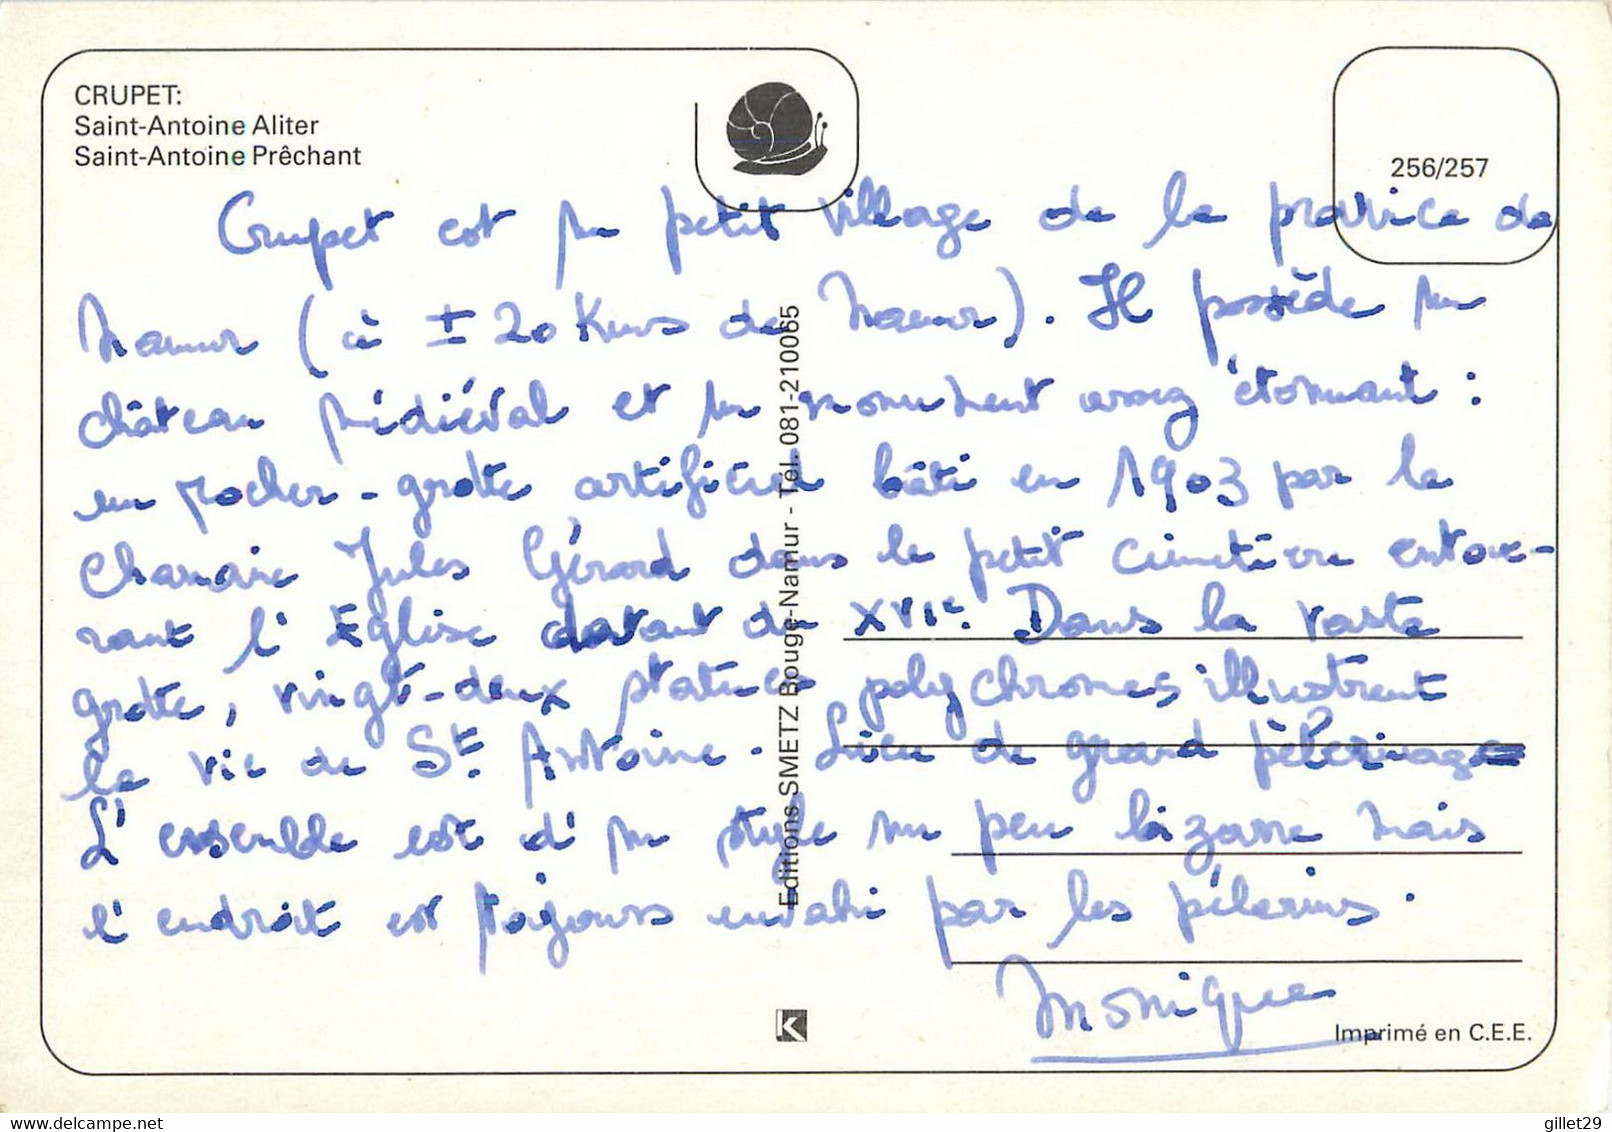 CRUPET:
Saint-Antoine Aliter
Saint-Antoine Prêchant
256/257
Crupet est un petit village de la province de
Namur (à ± 20 Kms de Namur). Il possède un
château médiéval et un monument assez étonnant :
un rocher-grotte artificiel bâti en 1903 par le
Chanoine Jules Gérard dans le petit cimetière entou-
rant l'Eglise datant du XVIe. Dans la vaste
grotte, vingt-deux statues polychromes illustrent
la vie de St Antoine. Lieu de grand pèlerinage
L'ensemble est d'un style un peu bizarre mais
l'endroit est toujours envahi par les pélerins.
Monique
Editions SMETZ Bouge-Namur - Tél. 081-210065
K
Imprimé en C.E.E.
delcampe.net
gillet29